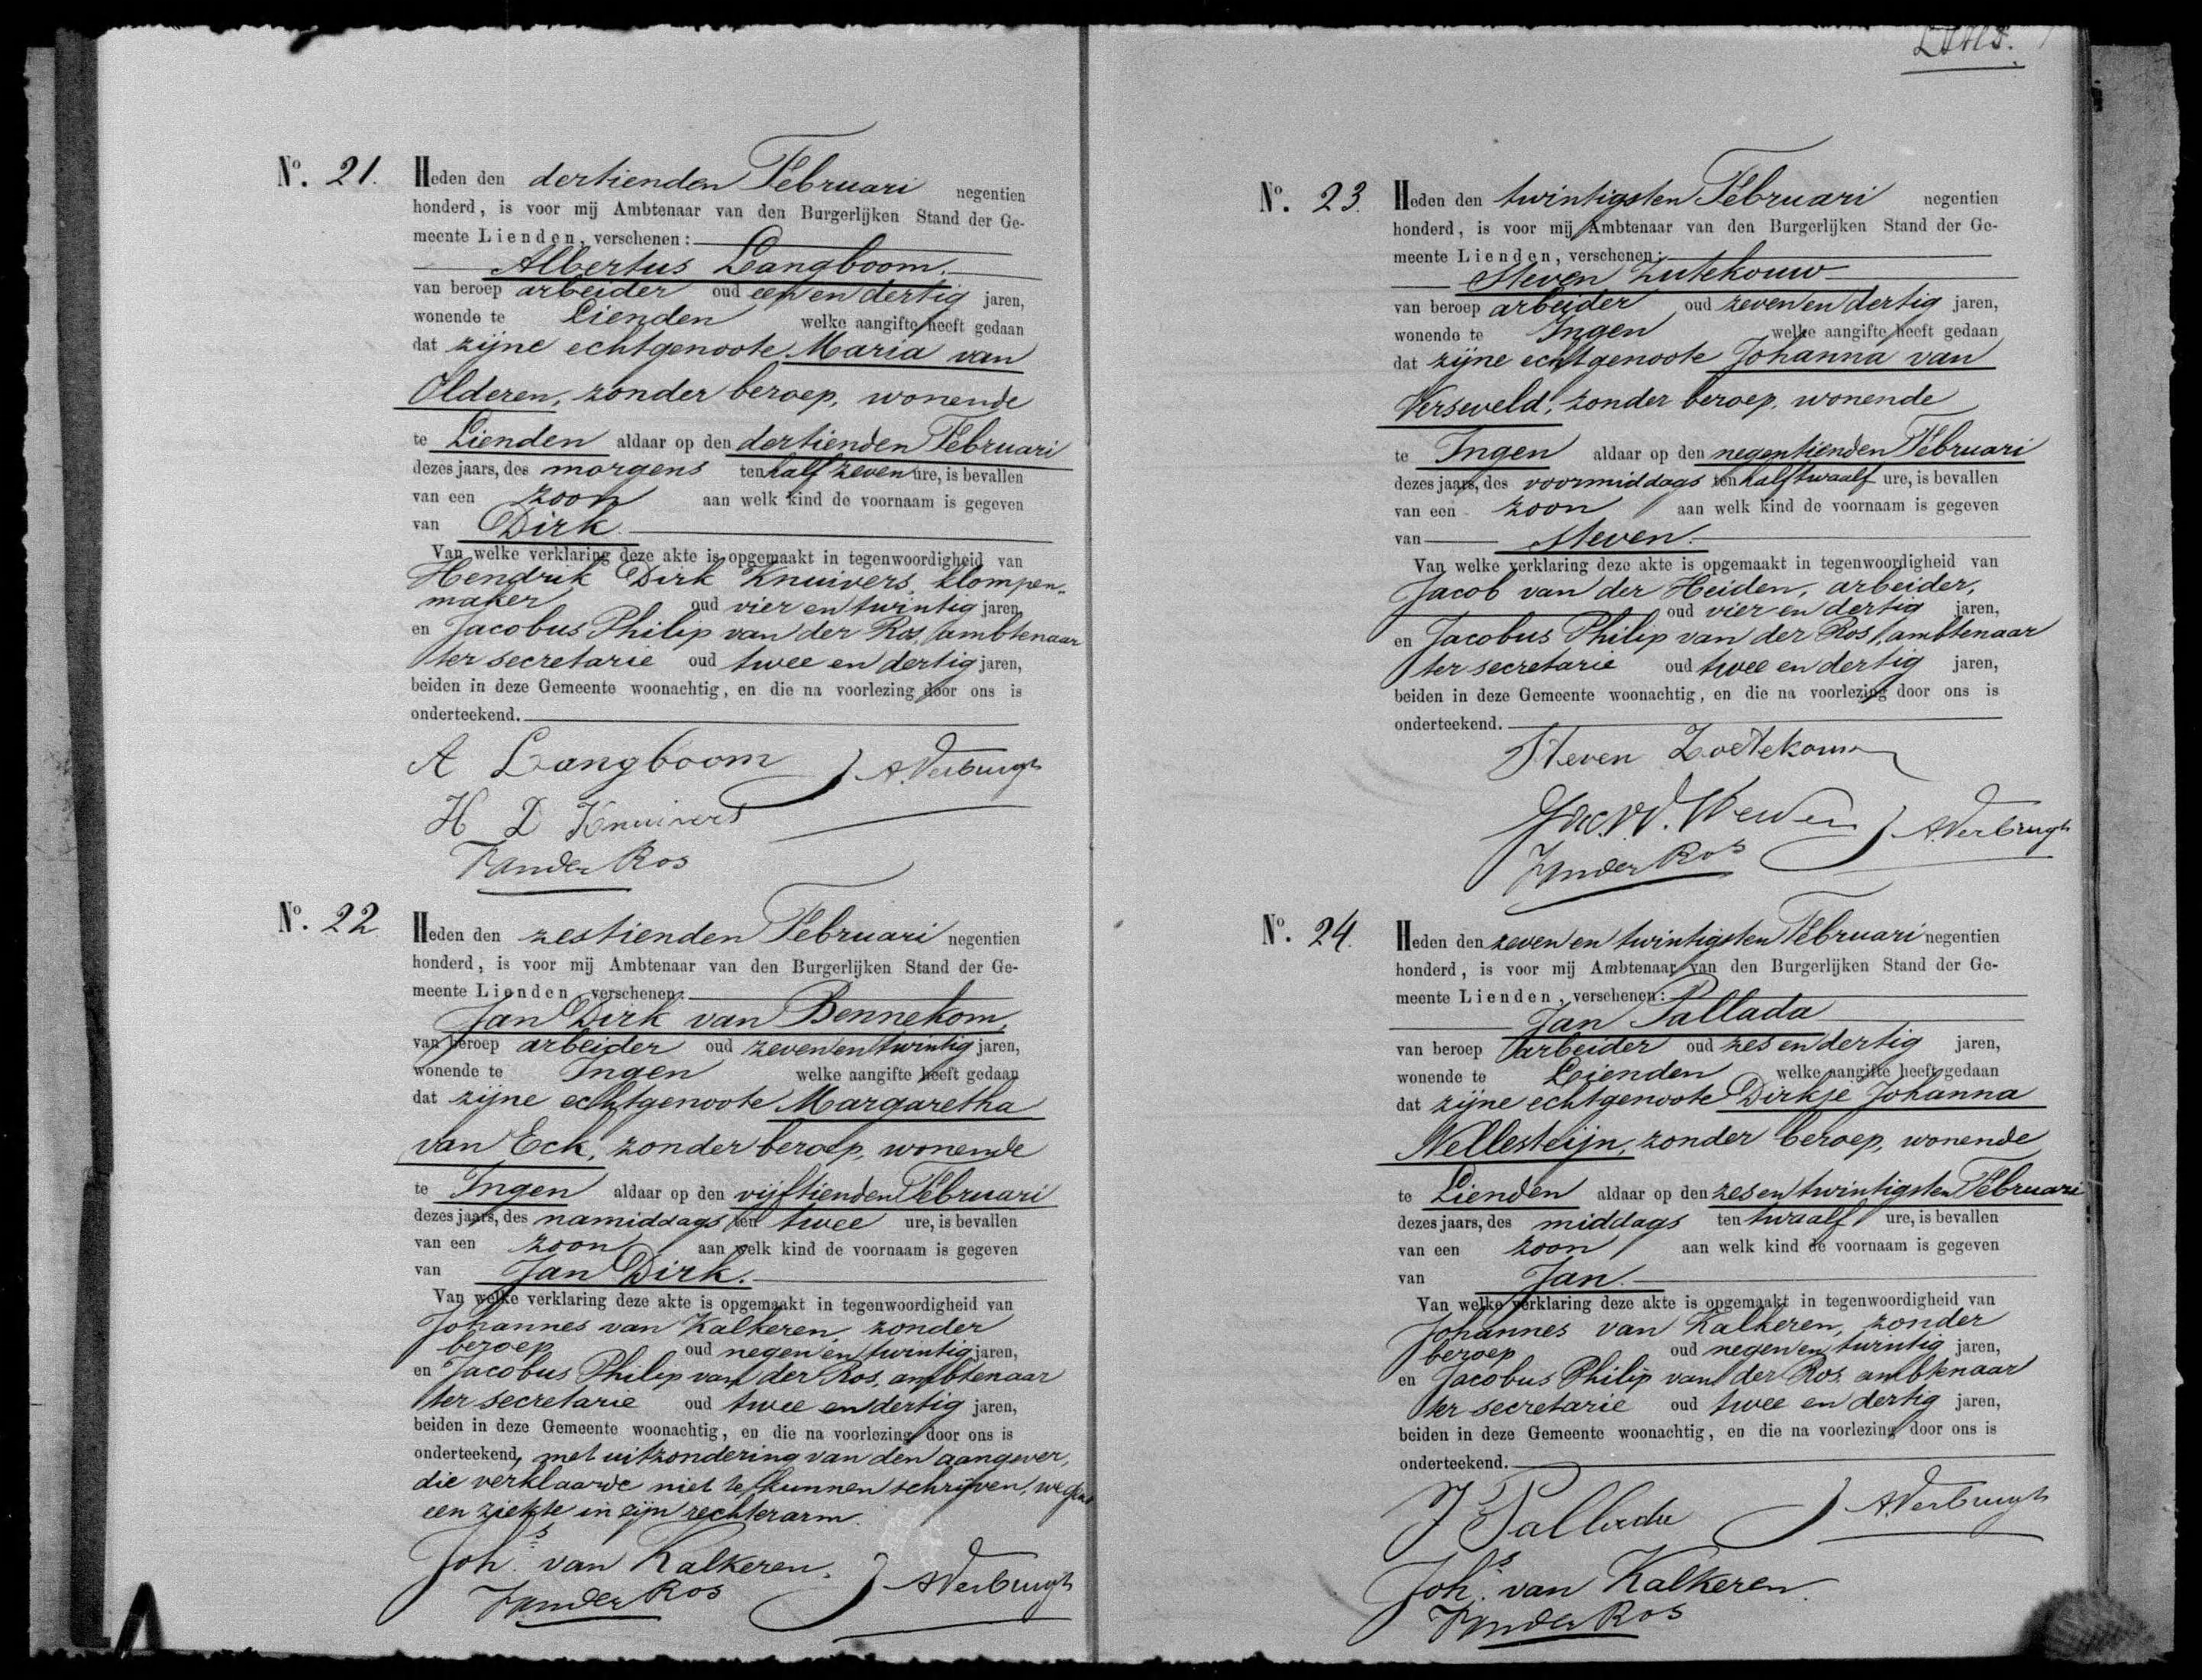 No. 21. Heden den dertienden Februari negentien
honderd, is voor mij Ambtenaar van den Burgerlijken Stand der Ge-
meente Lienden, verschenen:
Albertus Langboom.
van beroep arbeider oud een en dertig jaren,
wonende te Lienden welke aangifte heeft gedaan
dat zijne echtgenoote Maria van
Olderen, zonder beroep, wonende
te Lienden aldaar op den dertienden Februari
dezes jaars, des morgens ten half zeven ure, is bevallen
van een zoon aan welk kind de voornaam is gegeven
van Dirk.
Van welke verklaring deze akte is opgemaakt in tegenwoordigheid van
Hendrik Dirk Knuivers, klompen-
maker oud vier en twintig jaren,
en Jacobus Philip van der Ros, ambtenaar
ter secretarie oud twee en dertig jaren,
beiden in deze Gemeente woonachtig, en die na voorlezing door ons is
onderteekend.
A Langboom
AVerbrugh
H D Knuivers
JvanderRos
No. 22 Heden den zestienden Februari negentien
honderd, is voor mij Ambtenaar van den Burgerlijken Stand der Ge-
meente Lienden verschenen:
Jan Dirk van Bennekom,
van beroep arbeider oud zeven en twintig jaren,
wonende te Ingen welke aangifte heeft gedaan
dat zijne echtgenoote Margaretha
van Eck, zonder beroep, wonende
te Ingen aldaar op den vijftienden Februari
dezes jaars, des namiddags ten twee ure, is bevallen
van een zoon aan welk kind de voornaam is gegeven
van Jan Dirk.
Van welke verklaring deze akte is opgemaakt in tegenwoordigheid van
Johannes van Kalkeren, zonder
beroep oud negen en twintig jaren,
en Jacobus Philip van der Ros, ambtenaar
ter secretarie oud twee en dertig jaren,
beiden in deze Gemeente woonachtig, en die na voorlezing door ons is
onderteekend, met uitzondering van den aangever,
die verklaarde niet te kunnen schrijven, wegens
een ziekte in zijn rechterarm.
Johs. van Kalkeren.
AVerbrugh
JvanderRos
No. 23. Heden den twintigsten Februari negentien
honderd, is voor mij Ambtenaar van den Burgerlijken Stand der Ge-
meente Lienden, verschenen:
Steven Zutekouw
van beroep arbeider oud zeven en dertig jaren,
wonende te Ingen welke aangifte heeft gedaan
dat zijne echtgenoote Johanna van
Verseveld, zonder beroep, wonende
te Ingen aldaar op den negentienden Februari
dezes jaars, des voormiddags ten half twaalf ure, is bevallen
van een zoon aan welk kind de voornaam is gegeven
van Steven.
Van welke verklaring deze akte is opgemaakt in tegenwoordigheid van
Jacob van der Heiden, arbeider,
oud vier en dertig jaren,
en Jacobus Philip van der Ros, ambtenaar
ter secretarie oud twee en dertig jaren,
beiden in deze Gemeente woonachtig, en die na voorlezing door ons is
onderteekend.
Steven Zoetekouw
AVerbrugh
JvanderRos
No. 24. Heden den zeven en twintigsten Februari negentien
honderd, is voor mij Ambtenaar van den Burgerlijken Stand der Ge-
meente Lienden, verschenen:
Jan Pallada
van beroep arbeider oud zes en dertig jaren,
wonende te Lienden welke aangifte heeft gedaan
dat zijne echtgenoote Dirkje Johanna
Nellesteijn, zonder beroep, wonende
te Lienden aldaar op den zes en twintigsten Februari
dezes jaars, des middags ten twaalf ure, is bevallen
van een zoon aan welk kind de voornaam is gegeven
van Jan.
Van welke verklaring deze akte is opgemaakt in tegenwoordigheid van
Johannes van Kalkeren, zonder
beroep oud negen en twintig jaren,
en Jacobus Philip van der Ros, ambtenaar
ter secretarie oud twee en dertig jaren,
beiden in deze Gemeente woonachtig, en die na voorlezing door ons is
onderteekend.
J Pallada
AVerbrugh
Johs. van Kalkeren.
JvanderRos